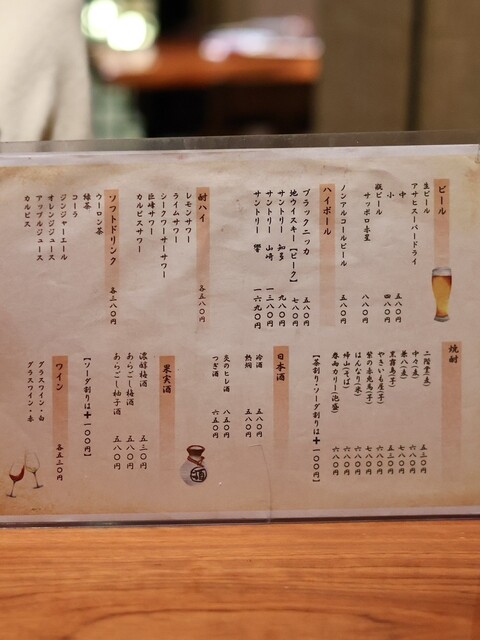 ビール
生ビール
アサヒスーパードライ
中 五八〇円
小 四八〇円
瓶ビール
サッポロ赤星 八八〇円
ノンアルコールビール 五八〇円
ハイボール
ブラックニッカ 五八〇円
地ウイスキー【ピーク】 七八〇円
サントリー 知多 九八〇円
サントリー 山崎 一三八〇円
サントリー 響 一六九〇円
酎ハイ 各五八〇円
レモンサワー
ライムサワー
シークワーサーサワー
巨峰サワー
カルピスサワー
ソフトドリンク 各三八〇円
ウーロン茶
緑茶
コーラ
ジンジャーエール
オレンジジュース
アップルジュース
カルピス
焼酎
二階堂(麦) 五三〇円
中々(麦) 六八〇円
兼八(麦) 七八〇円
黒霧島(芋) 五三〇円
やきいも屋(芋) 六八〇円
紫の赤兎馬(芋) 七八〇円
はんなり(米) 六八〇円
峰山(そば) 六八〇円
春雨カリー(泡盛) 六八〇円
【茶割り・ソーダ割りは+一〇〇円】
日本酒
冷酒 五八〇円
熱燗 五八〇円
炙のヒレ酒 八五〇円
つぎ酒 六五〇円
果実酒
濃醇梅酒 五三〇円
あらごし梅酒 五八〇円
あらごし柚子酒 五八〇円
【ソーダ割りは+一〇〇円】
ワイン 各五三〇円
グラスワイン・白
グラスワイン・赤
酒